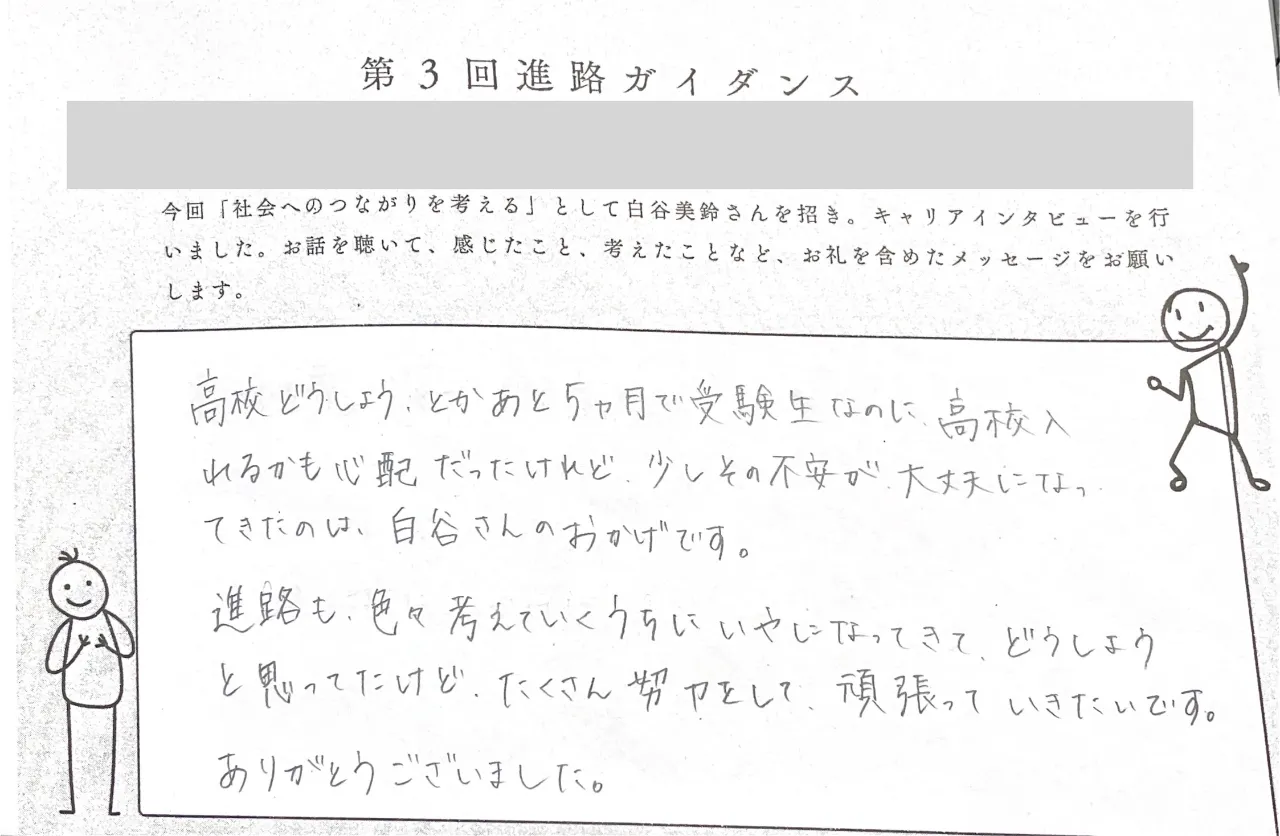 第3回進路ガイダンス
今回「社会へのつながりを考える」として白谷美鈴さんを招き。キャリアインタビューを行
いました。お話を聴いて、感じたこと、考えたことなど、お礼を含めたメッセージをお願い
します。
高校どうしよう、とかあと5ヶ月で受験生なのに、高校入
れるかも心配だったけれど、少しその不安が、大丈夫になっ
てきたのは、白谷さんのおかげです。
進路も、色々考えていくうちにいやになってきて、どうしよう
と思ってたけど、たくさん努力をして、頑張っていきたいです。
ありがとうございました。